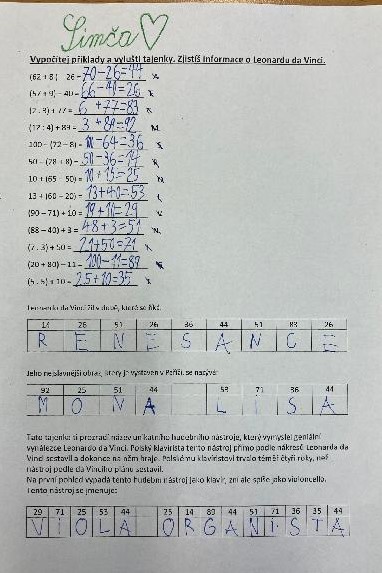 Simča
Vypočítej příklady a vylušti tajenky. Zjistíš informace o Leonardu da Vinci.
(62 + 8) - 26 = 70-26=44
(57 + 9) - 40 = 66-40=26
(2 . 3) + 77 = 6+77=83
(12 : 4) + 89 = 3+89=92
100 - (72 - 8) = -64=36
50 - (28 + 8) = 50-36=14
10 + (65 - 50) = 10+15=25
13 + (60 - 20) = 13+40=53
(90 - 71) + 10 = 19+10=29
(88 - 40) + 3 = 48+3=51
(7 . 3) + 50 = 21+50=71
(20 + 80) - 11 = 100-11=89
(5 . 5) + 10 = 25+10=35
Leonardo da Vinci žil v době, které se říká:
14 26 51 26 36 44 51 83 26
R E N E S A N C E
Jeho nejslavnější obraz, který je vystaven v Paříži, se nazývá:
92 25 51 44 53 71 36 44
M O N A L I S A
Tato tajenka ti prozradí název unikátního hudebního nástroje, který vymyslel geniální
vynálezce Leonardo da Vinci. Polský klavírista tento nástroj přímo podle nákresů Leonarda da
Vinci sestavil a dokonce na něm hraje. Polskému klavíristovi trvalo téměř čtyři roky, než
nástroj podle da Vinciho plánu sestavil.
Na první pohled vypadá tento hudební nástroj jako klavír, zní ale spíše jako violoncello.
Tento nástroj se jmenuje:
29 71 25 53 44 25 14 89 44 51 71 36 35 44
V I O L A O R G A N I S T A